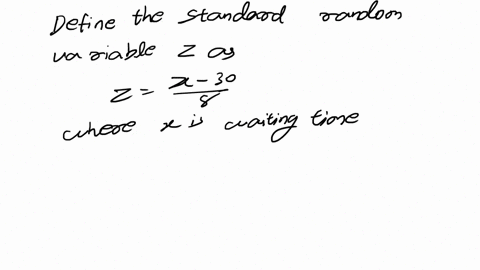 Define the standard random
variable z as
z = x - 30 / 8
where x is waiting time